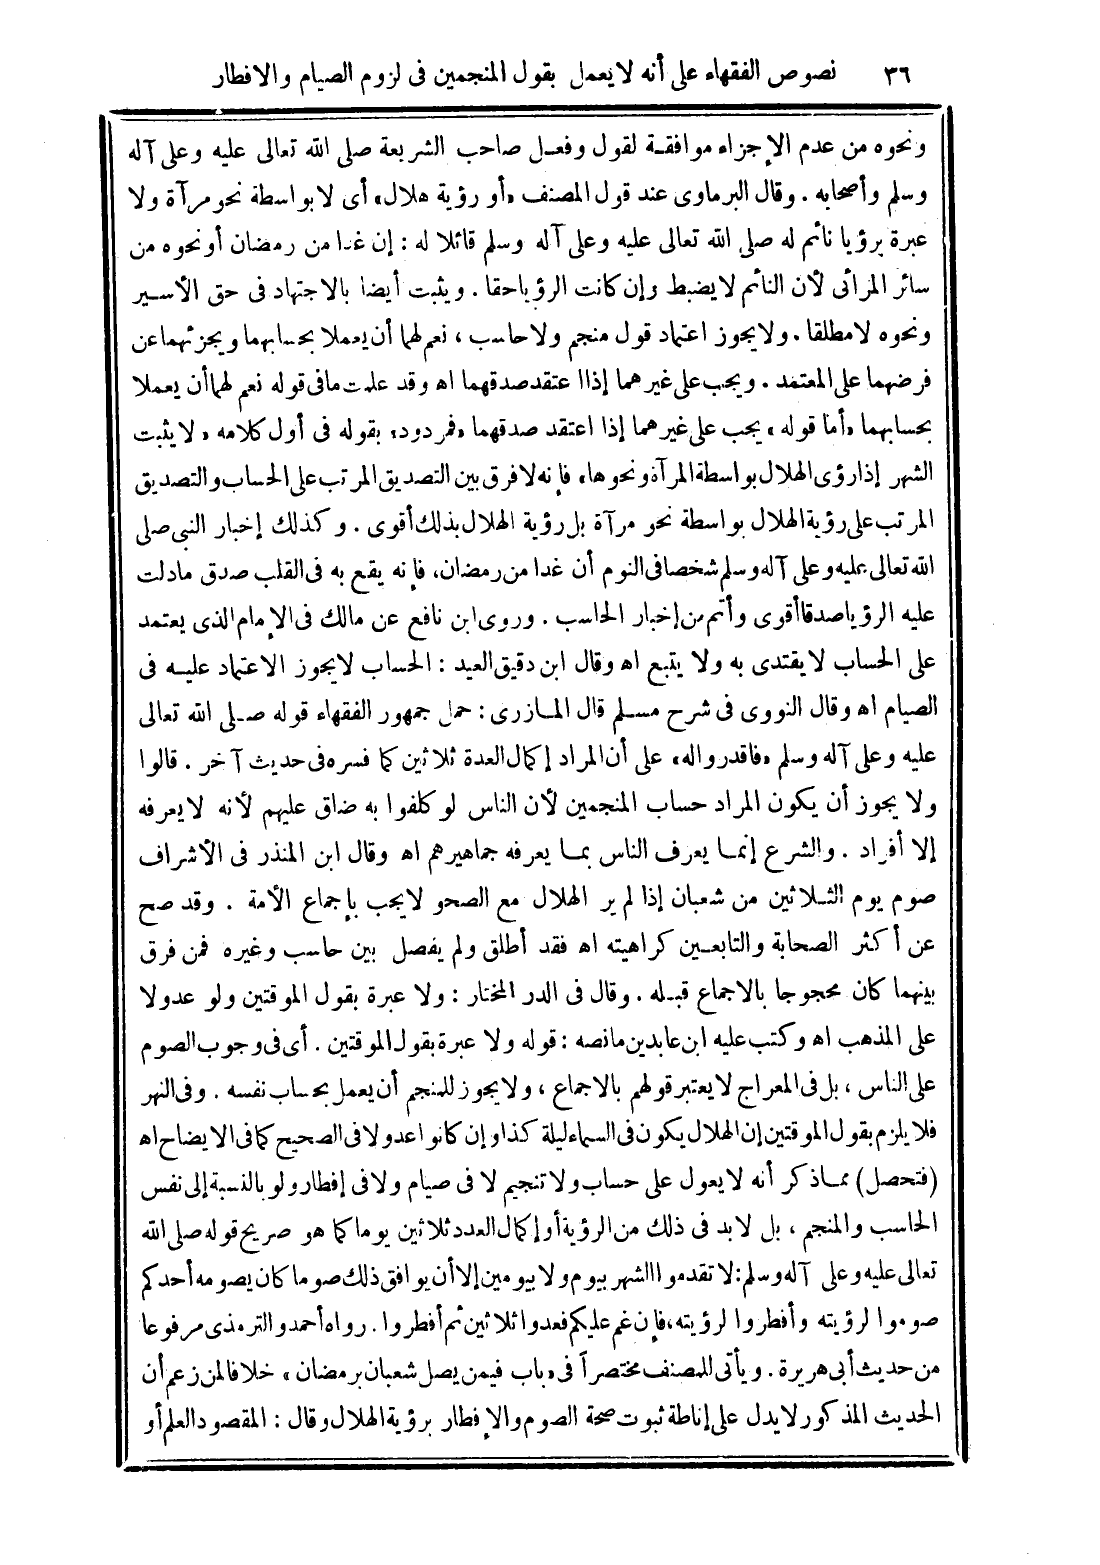 ٣٦ نصوص الفقهاء على أنه لا يعمل بقول المنجمين فى لزوم الصيام والافطار
ونحوه من عدم الإجزاء موافقة لقول وفعل صاحب الشريعة صلى الله تعالى عليه وعلى آله
وسلم وأصحابه . وقال البرماوى عند قول المصنف «أو رؤية هلال» أى لا بواسطة نحو مرآة ولا
عبرة برؤيا نائم له صلى الله تعالى عليه وعلى آله وسلم قائلا له : إن غدا من رمضان أو نحوه من
سائر المرائى لأن النائم لا يضبط وإن كانت الرؤيا حقا . ويثبت أيضا بالاجتهاد فى حق الأسير
ونحوه لا مطلقا . ولا يجوز اعتماد قول منجم ولا حاسب ، نعم لهما أن يعملا بحسابهما ويجزئهما عن
فرضهما على المعتمد . ويجب على غيرهما إذا اعتقد صدقهما اه وقد علمت ما فى قوله نعم لهما أن يعملا
بحسابهما «أما قوله » يجب على غيرهما إذا اعتقد صدقهما «فمردود» بقوله فى أول كلامه « لا يثبت
الشهر إذا رؤى الهلال بواسطة المرآة ونحوها» فإنه لا فرق بين التصديق المرتب على الحساب والتصديق
المرتب على رؤية الهلال بواسطة نحو مرآة بل رؤية الهلال بذلك أقوى . وكذلك إخبار النبى صلى
الله تعالى عليه وعلى آله وسلم شخصا فى النوم أن غدا من رمضان، فإنه يقع به فى القلب صدق ما دلت
عليه الرؤيا صدقا أقوى وأتم من إخبار الحاسب . وروى ابن نافع عن مالك فى الإمام الذى يعتمد
على الحساب لا يقتدى به ولا يتبع اه وقال ابن دقيق العيد : الحساب لا يجوز الاعتماد عليه فى
الصيام اه وقال النووى فى شرح مسلم قال المازرى : حمل جمهور الفقهاء قوله صلى الله تعالى
عليه وعلى آله وسلم «فاقدروا له» على أن المراد إكمال العدة ثلاثين كما فسره فى حديث آخر . قالوا
ولا يجوز أن يكون المراد حساب المنجمين لأن الناس لو كلفوا به ضاق عليهم لأنه لا يعرفه
إلا أفراد . والشرع إنما يعرف الناس بما يعرفه جماهيرهم اه وقال ابن المنذر فى الأشراف
صوم يوم الثلاثين من شعبان إذا لم ير الهلال مع الصحو لا يجب بإجماع الأمة . وقد صح
عن أكثر الصحابة والتابعين كراهيته اه فقد أطلق ولم يفصل بين حاسب وغيره فمن فرق
بينهما كان محجوجا بالاجماع قبله . وقال فى الدر المختار : ولا عبرة بقول الموقتين ولو عدولا
على المذهب اه وكتب عليه ابن عابدين ما نصه : قوله ولا عبرة بقول الموقتين . أى فى وجوب الصوم
على الناس ، بل فى المعراج لا يعتبر قولهم بالاجماع ، ولا يجوز للمنجم أن يعمل بحساب نفسه . وفى النهر
فلا يلزم بقول الموقتين إن الهلال يكون فى السماء ليلة كذا وإن كانوا عدولا فى الصحيح كما فى الايضاح اه
(فتحصل) مما ذكر أنه لا يعول على حساب ولا تنجيم لا فى صيام ولا فى إفطار ولو بالنسبة إلى نفس
الحاسب والمنجم ، بل لا بد فى ذلك من الرؤية أو إكمال العدد ثلاثين يوما كما هو صريح قوله صلى الله
تعالى عليه وعلى آله وسلم: لا تقدموا الشهر بيوم ولا بيومين إلا أن يوافق ذلك صوما كان يصومه أحدكم
صوموا لرؤيته وأفطروا لرؤيته، فإن غم عليكم فعدوا ثلاثين ثم أفطروا . رواه أحمد والترمذى مرفوعا
من حديث أبى هريرة . ويأتى للمصنف مختصراً فى «باب فيمن يصل شعبان برمضان » خلافا لمن زعم أن
الحديث المذكور لا يدل على إناطة ثبوت صحة الصوم والإفطار برؤية الهلال وقال : المقصود العلم أو